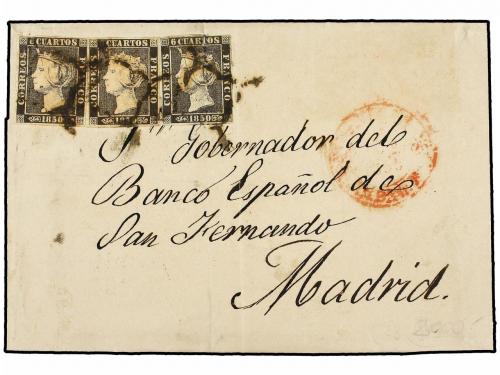 6 CUARTOS
CORREOS
FRANCO
1850
CUARTOS
CORREOS
FRANCO
6 CUARTOS
CORREOS
FRANCO
1850
Sr. Gobernador del
Banco Español de
San Fernando
Madrid.